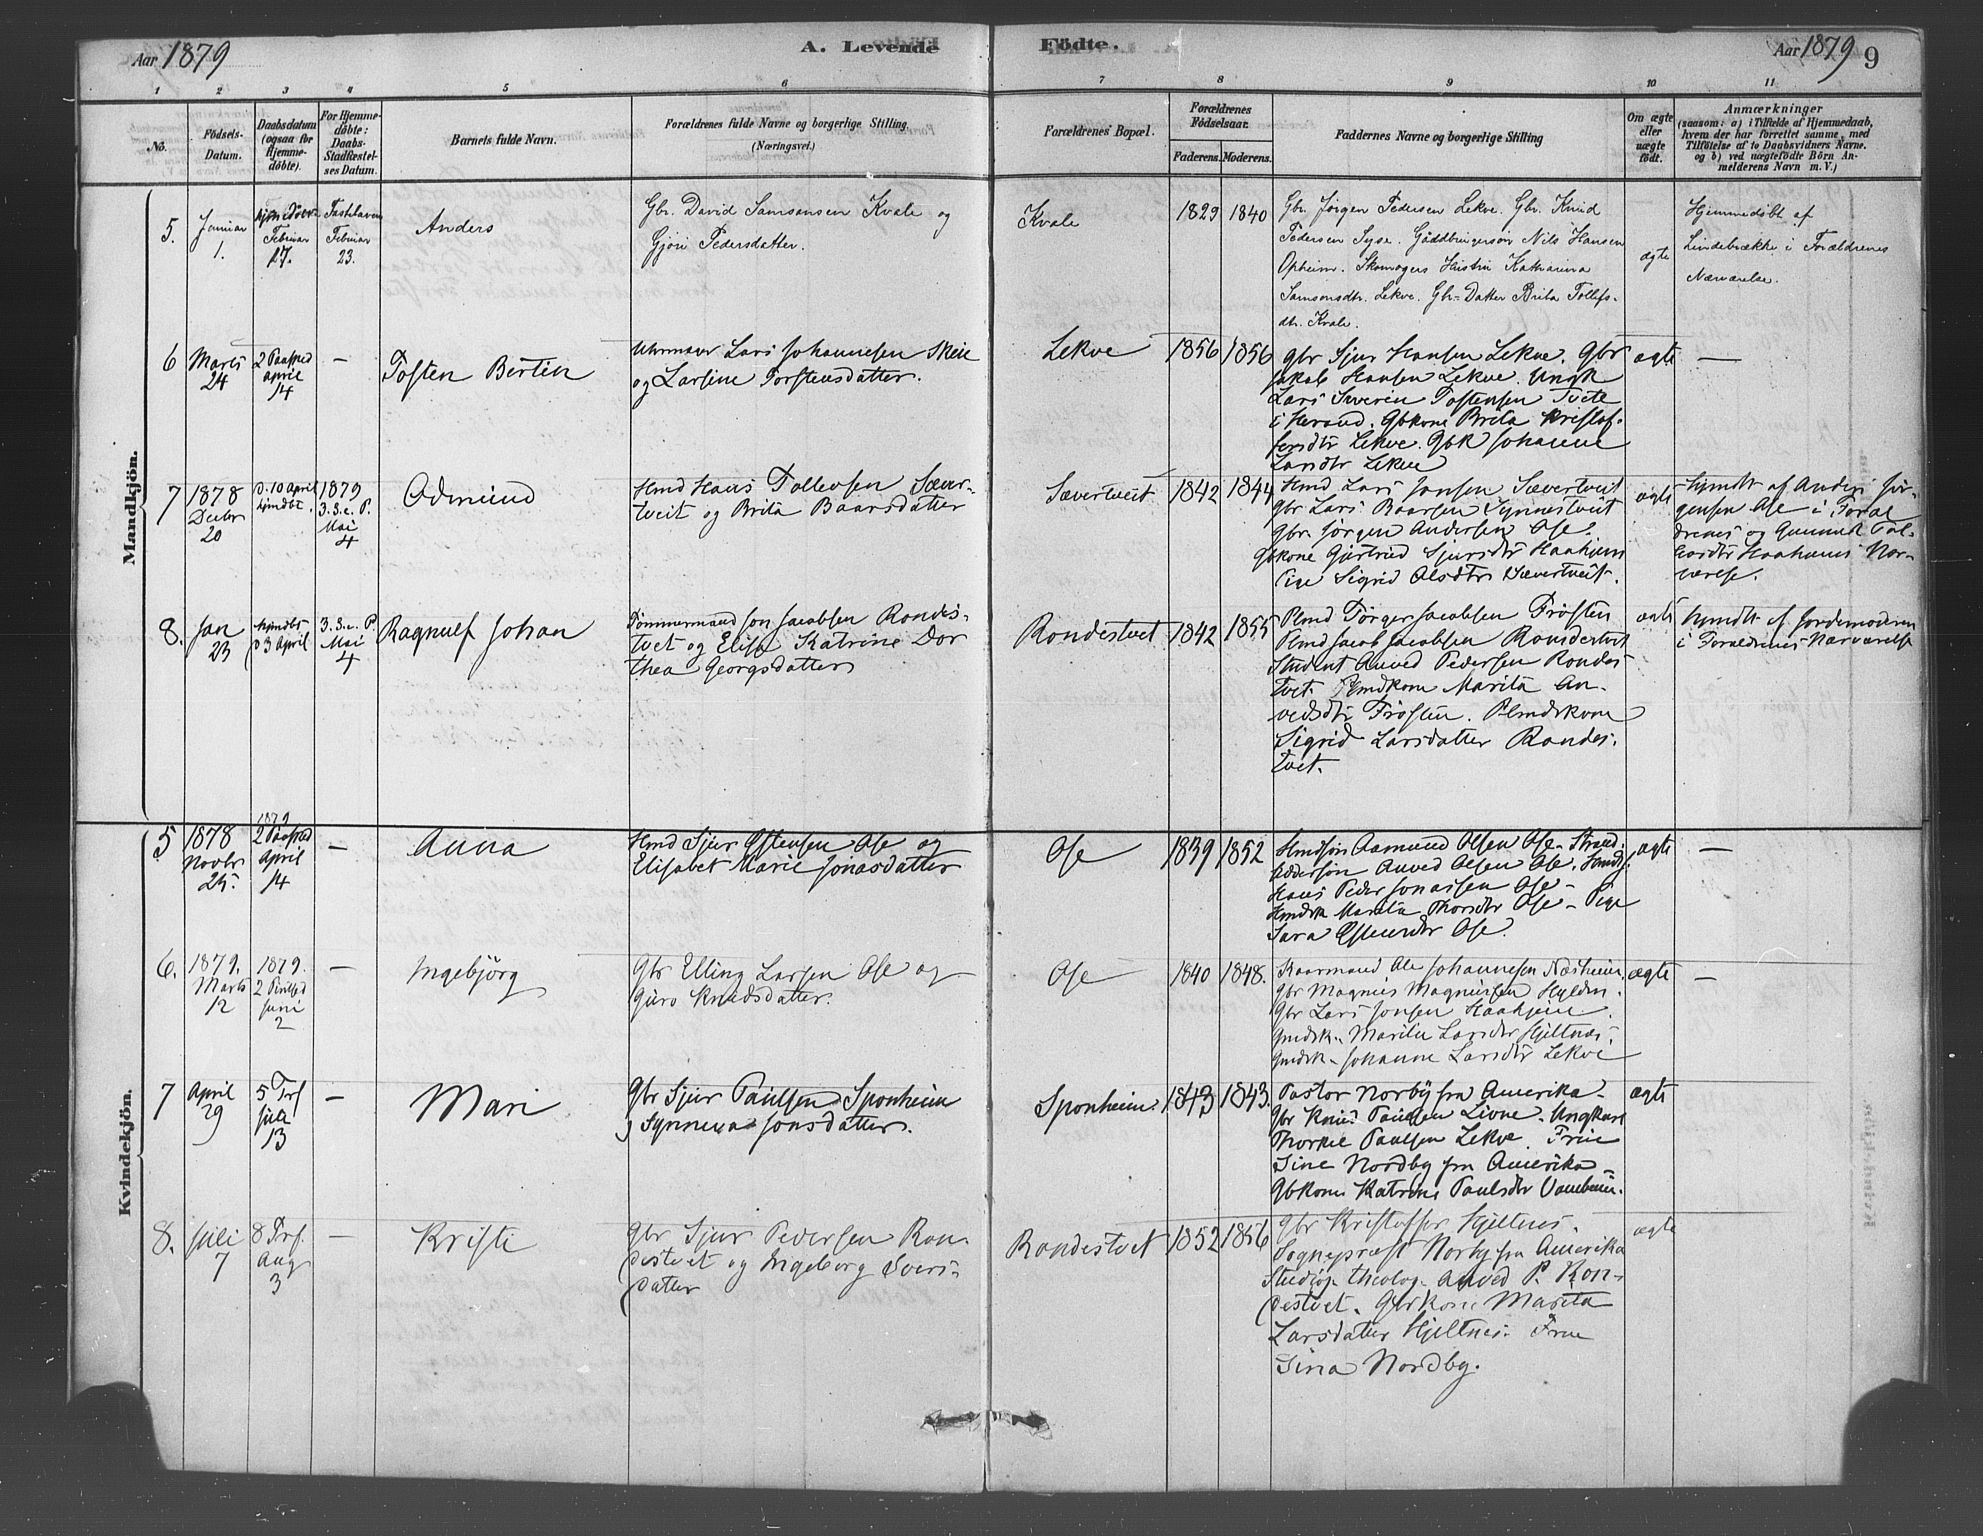 Aar 1879
A. Levende Födte.
Aar 1879 9
1 2 3 4 5 6 7 8 9 10 11
No.
Födsels-
Datum.
Daabsdatum
(ogsaa for
Hjemme-
döbte).
For Hjemme-
döbte:
Daabs-
Stadfæstel-
ses Datum.
Barnets fulde Navn.
Forældrenes fulde Navne og borgerlige Stilling
(Næringsvei.)
Forældrenes Bopæl.
Forældrenes
Födselsaar.
Faderens. Moderens.
Faddernes Navne og borgerlige Stilling
Om ægte
eller
uægte
födt.
Anmærkninger
(saasom: a) i Tilfælde af Hjemmedaab,
hvem der har forrettet samme, med
Tilföielse af to Daabsvidners Navne.
og b) ved uægtefödte Börn An-
melderens Navn m. V.)
Mandkjön.
5.
Januar
1.
Februar
17.
Fastelavns
Februar
23.
Anders
Gbr. David Samsonsen Kvale og
Gjöri Pedersdatter.
Kvale
1829 1840
Gbr. Jörgen Pedersen Lekve. Gbr. Knud
Pedersen Syse. Nils Hansen
Opheim. Skomagers Hustru Katharina
Samsonsdtr. Lekve. Gbr-Datter Brita Tollefs-
dtr. Kvale.
ægte
Hjemmedöbt af
i Forældrenes
Nærværelse.
6
Marts
24
2 Paasked
april
14
—
Tosten Bertin
Uhrmager Lars Johannesen Skeie
og Larsine Torstensdatter.
Lekve
1856 1856
Gbr Sjur Hansen Lekve. Gbr
Jakob Hansen Lekve. Ungk
Lars Severin Tostensen Tvete
i Herand. Gbkone Brita Kristof-
fersdtr Lekve. Gbk Johanne
Larsdtr Lekve
ægte
—
7
1878
Decbr
20
d. 10 April
hjmdbt.
1879
3. S. e. P.
Mai
4
Odmund
Hmd Hans Tollevsen Sæver-
tveit og Brita Baarsdatter
Sævertveit
1842 1844
Hmd Lars Jonsen Sævertveit
Gbr Lars Baarsen Synnestveit
Gbr. Jörgen Andersen Ose.
Gbkone Gjertrud Sjursdtr Haaheim
Pige Sigrid Olsdtr Sævertveit.
ægte
Hjmdbt af Anders Jör-
gensen Ose i Foræl
drenes og Gunnild Tol-
Haaheims Nær-
værelse.
8.
Jan
23
hjmdbt
d 3 April
3. S. e. P
Mai
4
Ragnulf Johan
Tömmermand Jon Jacobsen Rondes-
tvet og Elise Katrine Dor
thea Georgsdatter
Rondestvet
1842 1855
Plmd Törger Jacobsen Tröften
Plmd Jacob Jacobsen Rondestvet
Student Anved Pedersen Rondes
tvet. Plmdkone Marita An-
vedsdtr Tröften. Plmdskone
Sigrid Larsdatter Rondes-
tvet.
ægte
hjmdbt af Jordemoderen
i Forældrenes Nærværelse
Kvindekjön.
5
1878
Novbr
25.
1879
2 Paasked
April
14
—
Anna
Hmd Sjur Östensen Ose og
Elisabet Marie Jonasdatter
Ose
1839 1852
Hmdsön Aamund Olsen Ose. Strand-
siddersön Anved Olsen Ose.
Hans Peder Jonassen Ose –
Hmdsk Marita Thorsdtr Ose – Pige
Sara Östensdtr Ose.
ægte
—
6.
1879.
Marts
12
1879.
2 Pintsed
Juni
2
—
Ingebjörg
Gbr Elling Larsen Ose og
Guro Knudsdatter.
Ose
1840 1848.
Kaarmand Ole Johannesen Næsheim.
Gbr Magnus Magnussen Hylden.
Gbr Lars Jonsen Haaheim.
Gmdsk. Marita Larsdtr Hjeltnæs.
Gmdsk. Johanne Larsdtr Lekve
ægte
—
7
April
29
5 Trf
Juli
13
—
Mari
Gbr Sjur Paulsen Sponheim
og Synneva Jonsdatter.
Sponheim.
1843 1843.
Pastor Norby fra Amerika –
Gbr Knud Paulsen Lione – Ungkarl
Thorkel Paulsen Lekve. Frue
Sine Nordby fra Amerika –
Gbkone Katrine Paulsdtr Vambeim.
ægte
8.
Juli
7
8 Trf.
Aug
3
—
Kristi
Gbr Sjur Pedersen Ron-
destvet og Ingeborg Sveris-
datter
Rondestvet
1852 1856
Gbr Kristoffer Hjeltnes –
Sognepræst Norby fra Amerika
Studios. theolog. Anved P. Ron-
destvet. Gbrkone Marita
Larsdatter Hjeltnes. Frue
Sina Nordby.
ægte